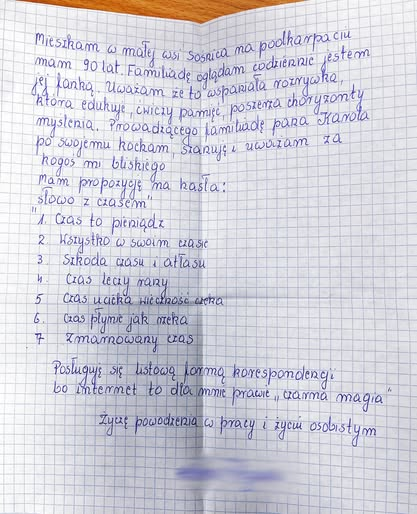 Mieszkam w małej wsi Sośnica na podkarpaciu
mam 90 lat. Familiadę oglądam codziennie jestem
jej fanką. Uważam że to wspaniała rozrywka,
która edukuje, ćwiczy pamięć, poszerza choryzonty
myślenia. Prowadzącego familiadę pana Karola
po swojemu kocham, szanuję i uważam za
kogoś mi bliskiego
mam propozycję na hasła:
słowo z czasem"
"1. Czas to pieniądz
2 Wszystko w swoim czasie
3 Szkoda czasu i atłasu
4. Czas leczy rany
5 Czas ucieka wieczność czeka
6. Czas płynie jak rzeka
7 Zmarnowany czas
Posługuję się listową formą korespondencji
bo internet to dla mnie prawie „czarna magia"
Życzę powodzenia w pracy i życiu osobistym